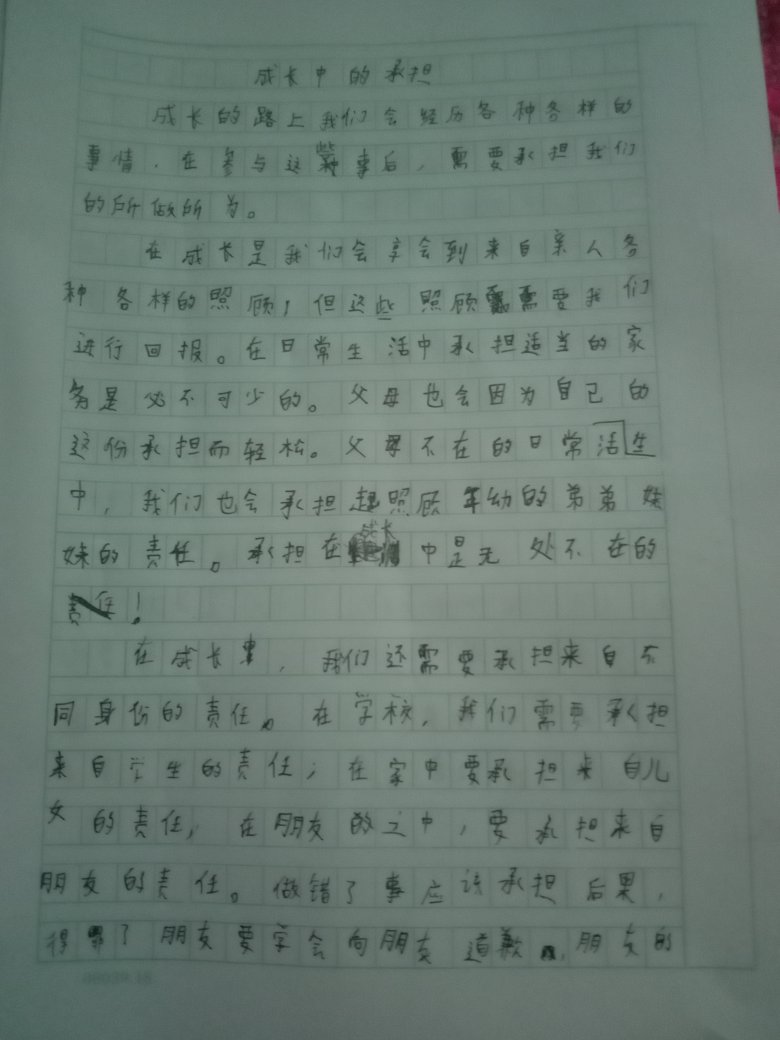 成长中的承担
成长的路上我们会经历各种各样的
事情，在参与这些事后，需要承担我们
的所做所为。
在成长是我们会享会到来自亲人各
种各样的照顾，但这些照顾需要我们
进行回报。在日常生活中承担适当的家
务是必不可少的。父母也会因为自己的
这份承担而轻松。父母不在的日常活生
中，我们也会承担起照顾年幼的弟弟妹
妹的责任。承担在成长中是无处不在的
！
在成长里，我们还需要承担来自不
同身份的责任。在学校，我们需要承担
来自学生的责任；在家中要承担来自儿
女的责任，在朋友之中，要承担来自
朋友的责任。做错了事应该承担后果，
得罪了朋友要学会向朋友道歉，朋友的